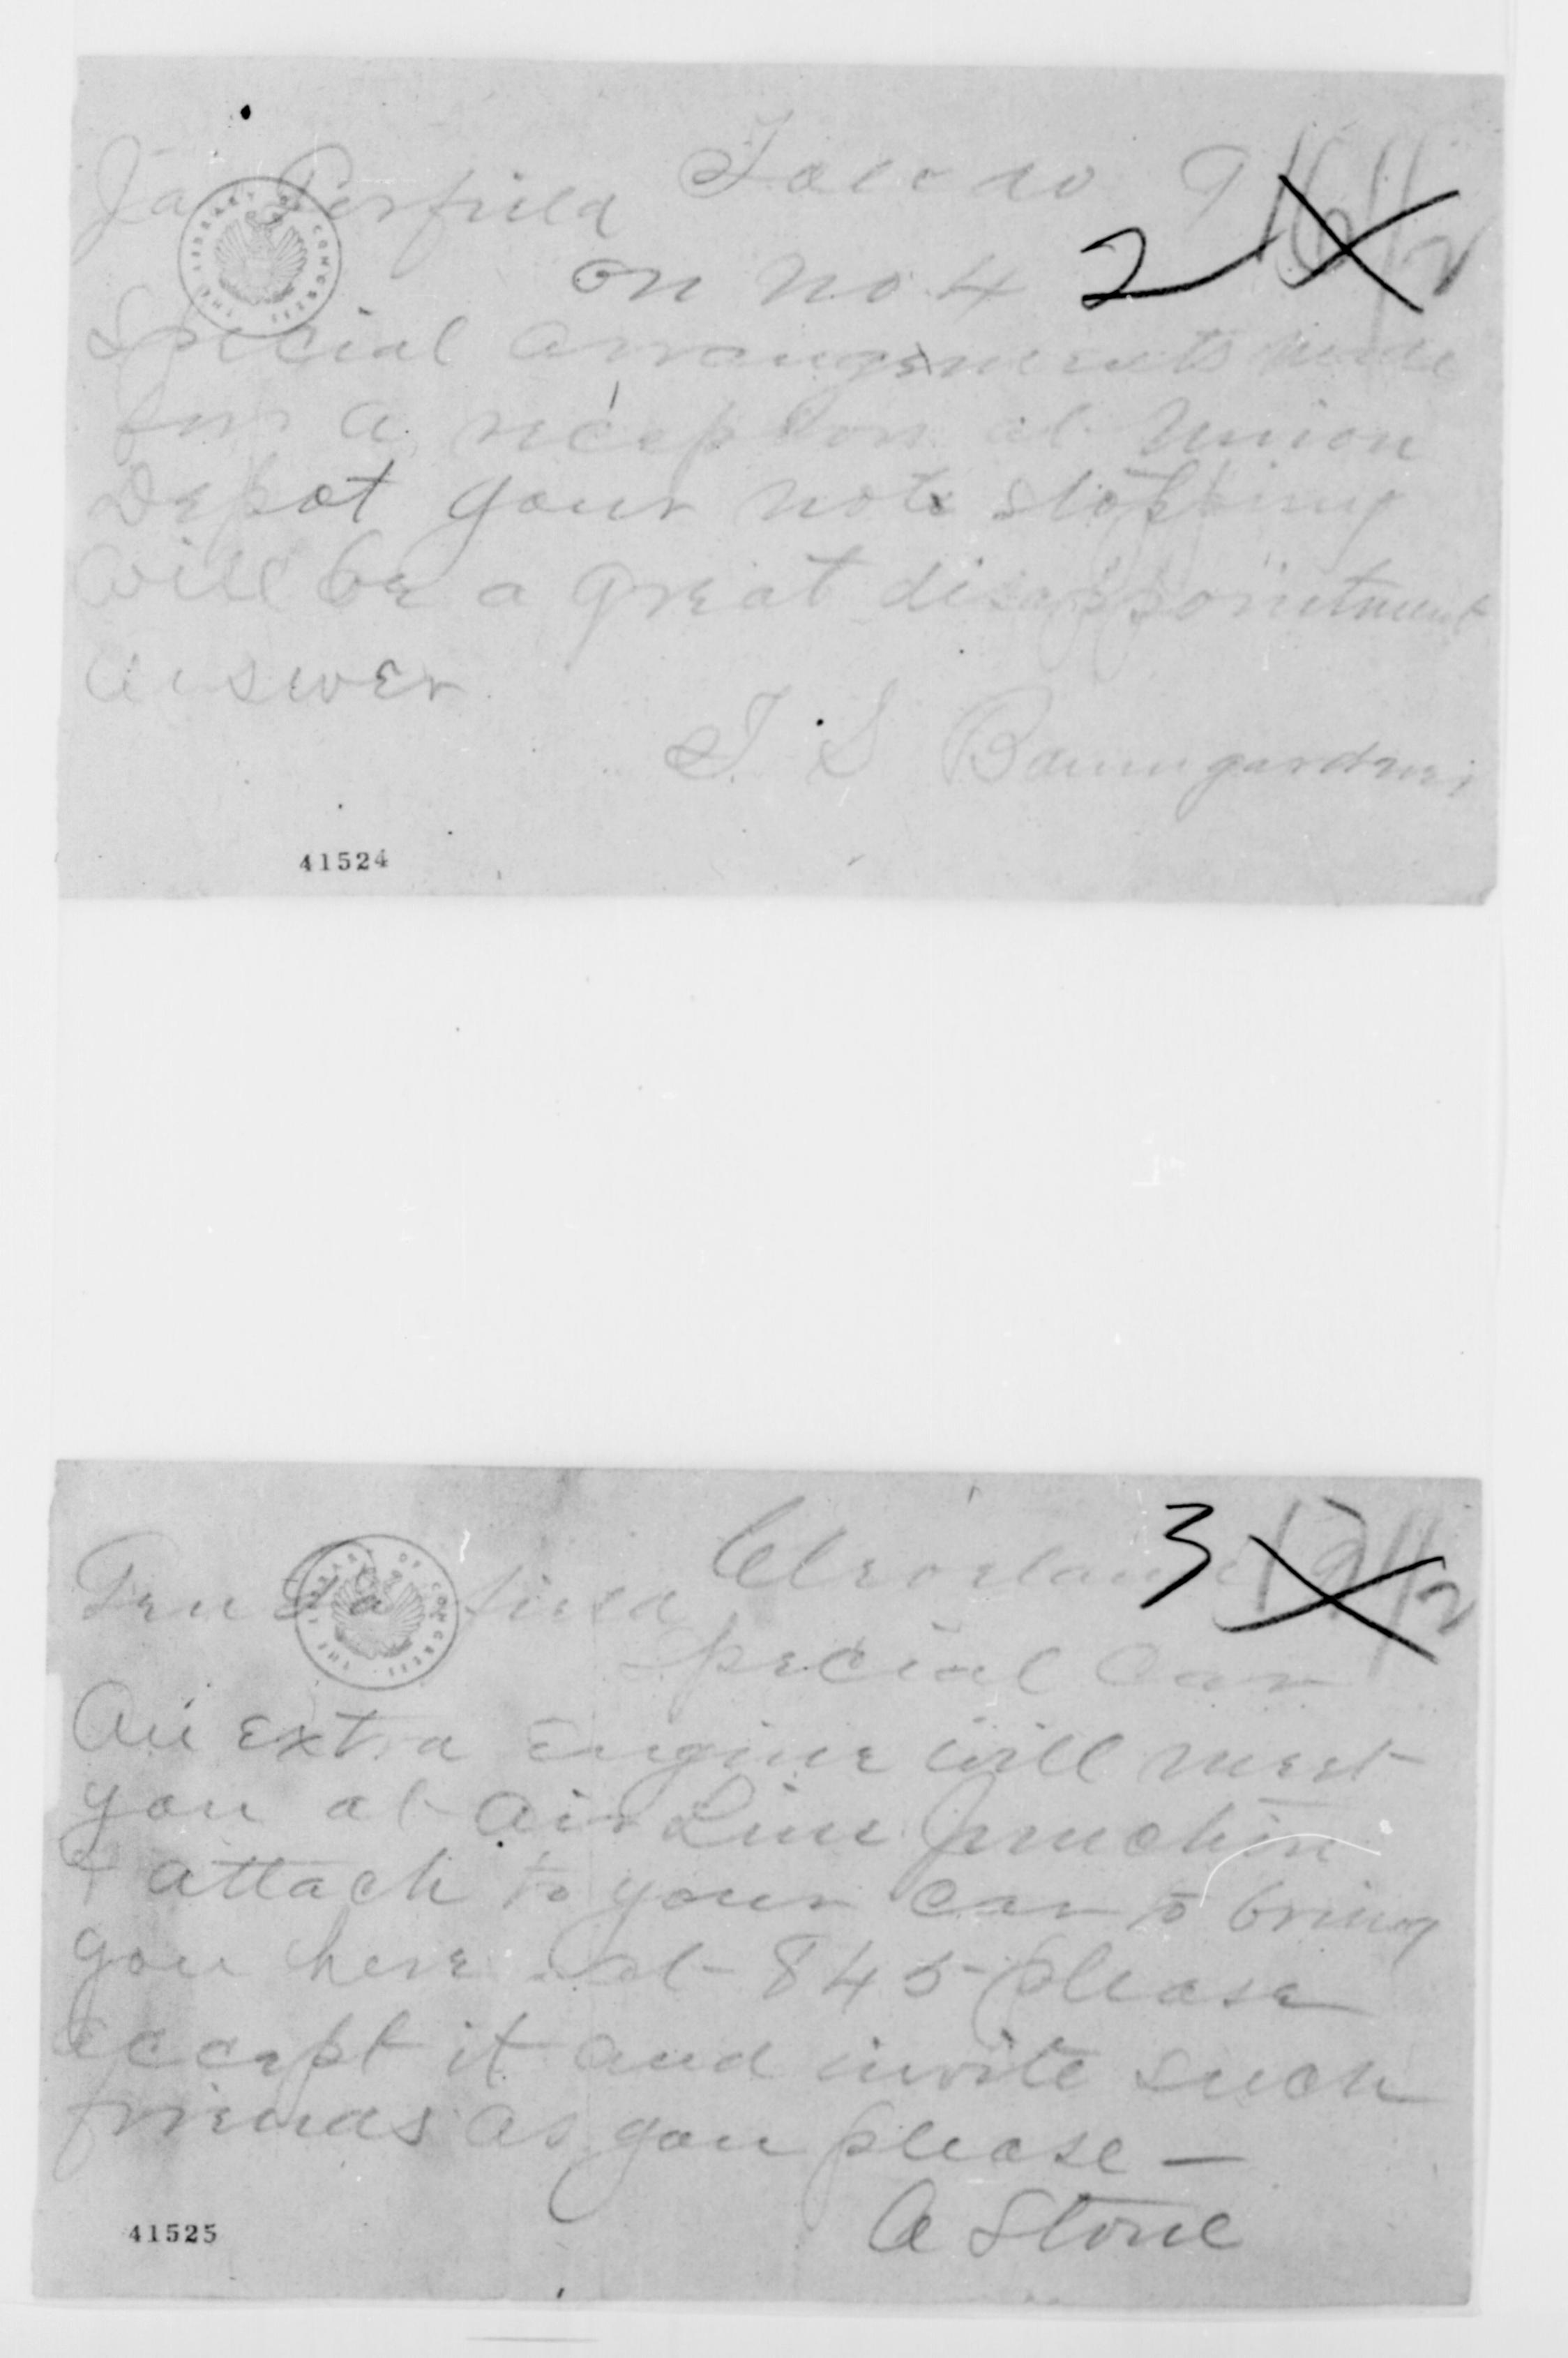 Toledo 9
Ja Garfield
on no 4
2
Special Arrangements made
for a reception at Union
Depot your note stopping
will be a great disappointment
answer
J. S Baumgardner
41524
Cleveland
3
Genl Garfield
Special Car
An extra Engine will meet
you at Air Line Junction
& attach to your car to bring
you here at 845 please
accept it and invite such
friends as you please —
A Stone
41525